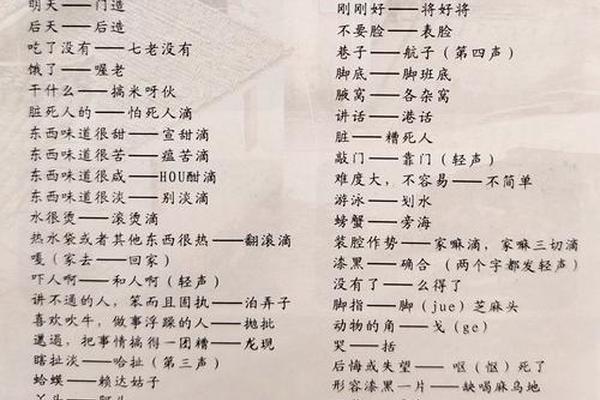 明天——门造
后天——后造
吃了没有——七老没有
饿了——喔老
干什么——搞米呀伙
脏死人的——怕死人滴
东西味道很甜——宣甜滴
东西味道很苦——瘟苦滴
东西味道很咸——HOU酣滴
东西味道很淡——别淡滴
水很烫——滚烫滴
热水袋或者其他东西很热——翻滚滴
嘎（家去——回家）
吓人啊——和人啊（轻声）
讲不通的人，笨而且固执——泊弄子
喜欢吹牛，做事浮躁的人——抛批
邋遢，把事情搞得一团糟——龙现
瞎扯淡——哈扯（第三声）
蛤蟆——赖达姑子
丫头——阿头
刚刚好——将好将
不要脸——表脸
巷子——航子（第四声）
脚底——脚班底
腋窝——各杂窝
讲话——港话
脏——糟死人
敲门——靠门（轻声）
难度大，不容易——不简单
游泳——划水
螃蟹——旁海
装腔作势——家嘛滴，家嘛三切滴
漆黑——确合（两个字都发轻声）
没有了——么得了
脚指——脚（jue）芝麻头
动物的角——戈（ge）
哭——括
后悔或失望——呕（怄）死了
形容漆黑一片——缺喝麻乌地